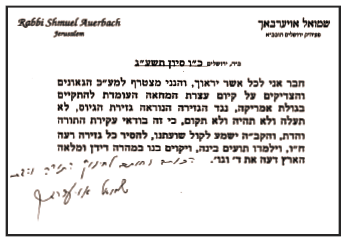 Rabbi Shmuel Auerbach
Jerusalem
שמואל אויערבאך
פעיה"ק ירושלים תובב"א
ביה, ירושלים כ"ו סיון תשע"ג
חבר אני לכל אשר יראוך, והנני מצטרף למע"כ הגאונים
והצדיקים על קיום עצרת המחאה העומדת להתקיים
בגולת אמריקה, נגד הגזירה הנוראה גזירת הגיוס, לא
תעלה ולא תהיה ולא תקום, כי זה בוודאי עקירת התורה
והדת, והקב"ה ישמע לקול שועתנו, להסיר כל גזירה רעה
ח"ו, וילמדו תועים בינה, ויקוים בנו במהרה דידן ומלאה
הארץ דעה את ד' וגו'.